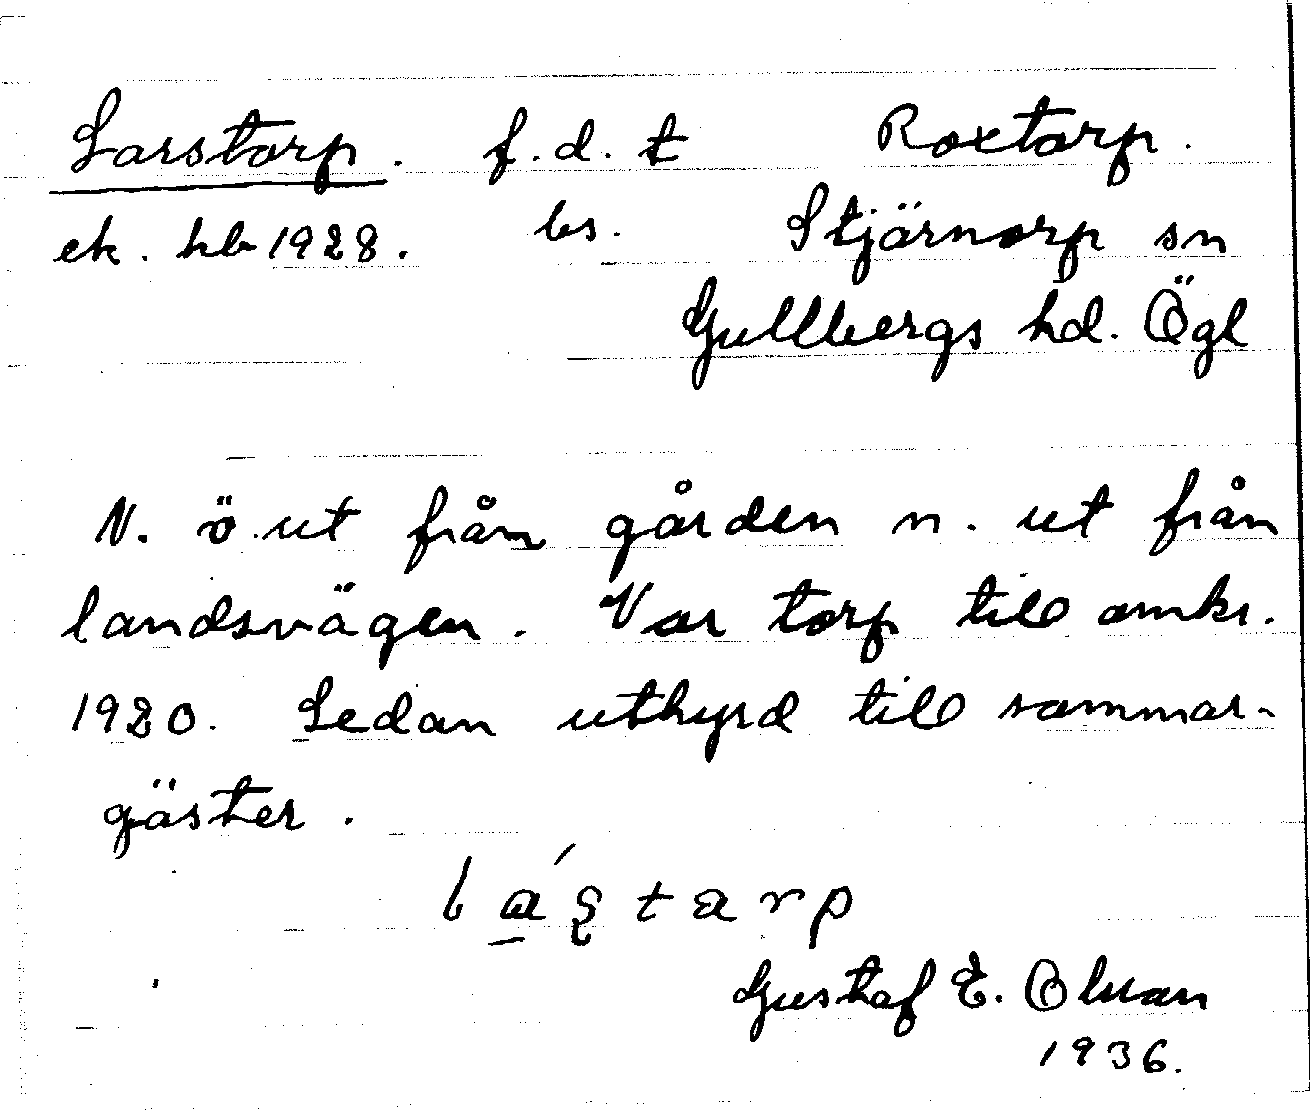 Larstorp. f.d. t Roxtorp.
ek. hb 1928. bs. Stjärnorp sn
Gullbergs hd. Ögl
N. ö. ut från gården n. ut från
landsvägen. Var torp till omkr.
1920. Sedan uthyrd till sommar-
gäster.
Gustaf E. Olsson
1936.